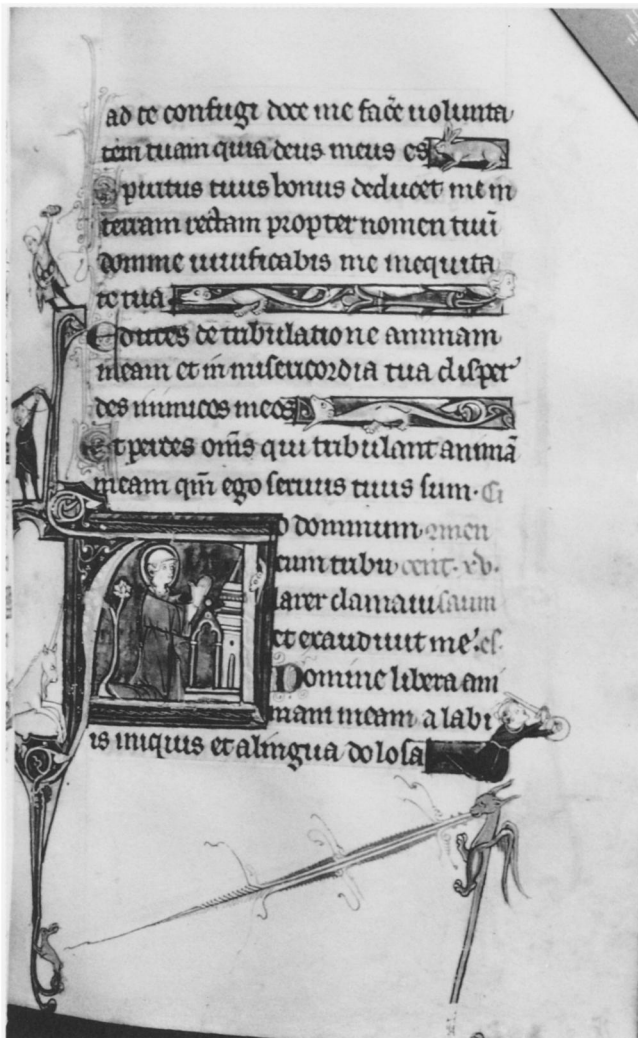 ad te confugi doce me face uolunta
tem tuam quia deus meus es
Spiritus tuus bonus deducet me in
terram rectam propter nomen tuū
domine uiuificabis me inequita
te tua
Educes de tribulatione animam
meam et in misericordia tua disper
des inimicos meos
Et perdes om̄s qui tribulant animā
meam qm̄ ego seruus tuus sum.
Ad dominum
cum tribu
larer clamaui
et exaudiuit me.
Domine libera ani
mam meam a labi
is iniquis et a lingua dolosa